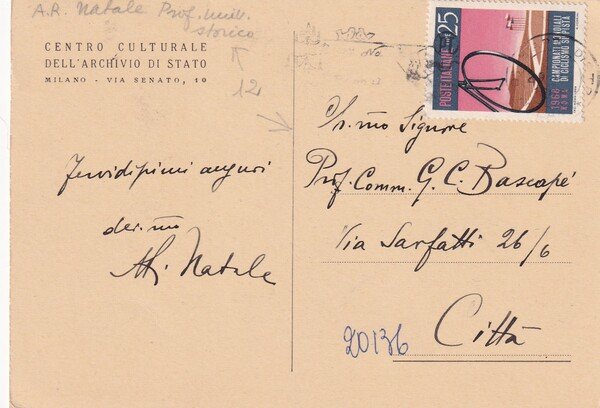 A.R. Natale Prof. milit.
storico
12
CENTRO CULTURALE
DELL'ARCHIVIO DI STATO
MILANO - VIA SENATO, 10
Fervidissimi auguri
dev.mo
Natale
POSTE ITALIANE
25
1968
ROMA
CAMPIONATI MONDIALI
DI CICLISMO SU PISTA
Signore
Prof. Comm. G. C. Bascapé
Via Sarfatti 26/6
Città
20136